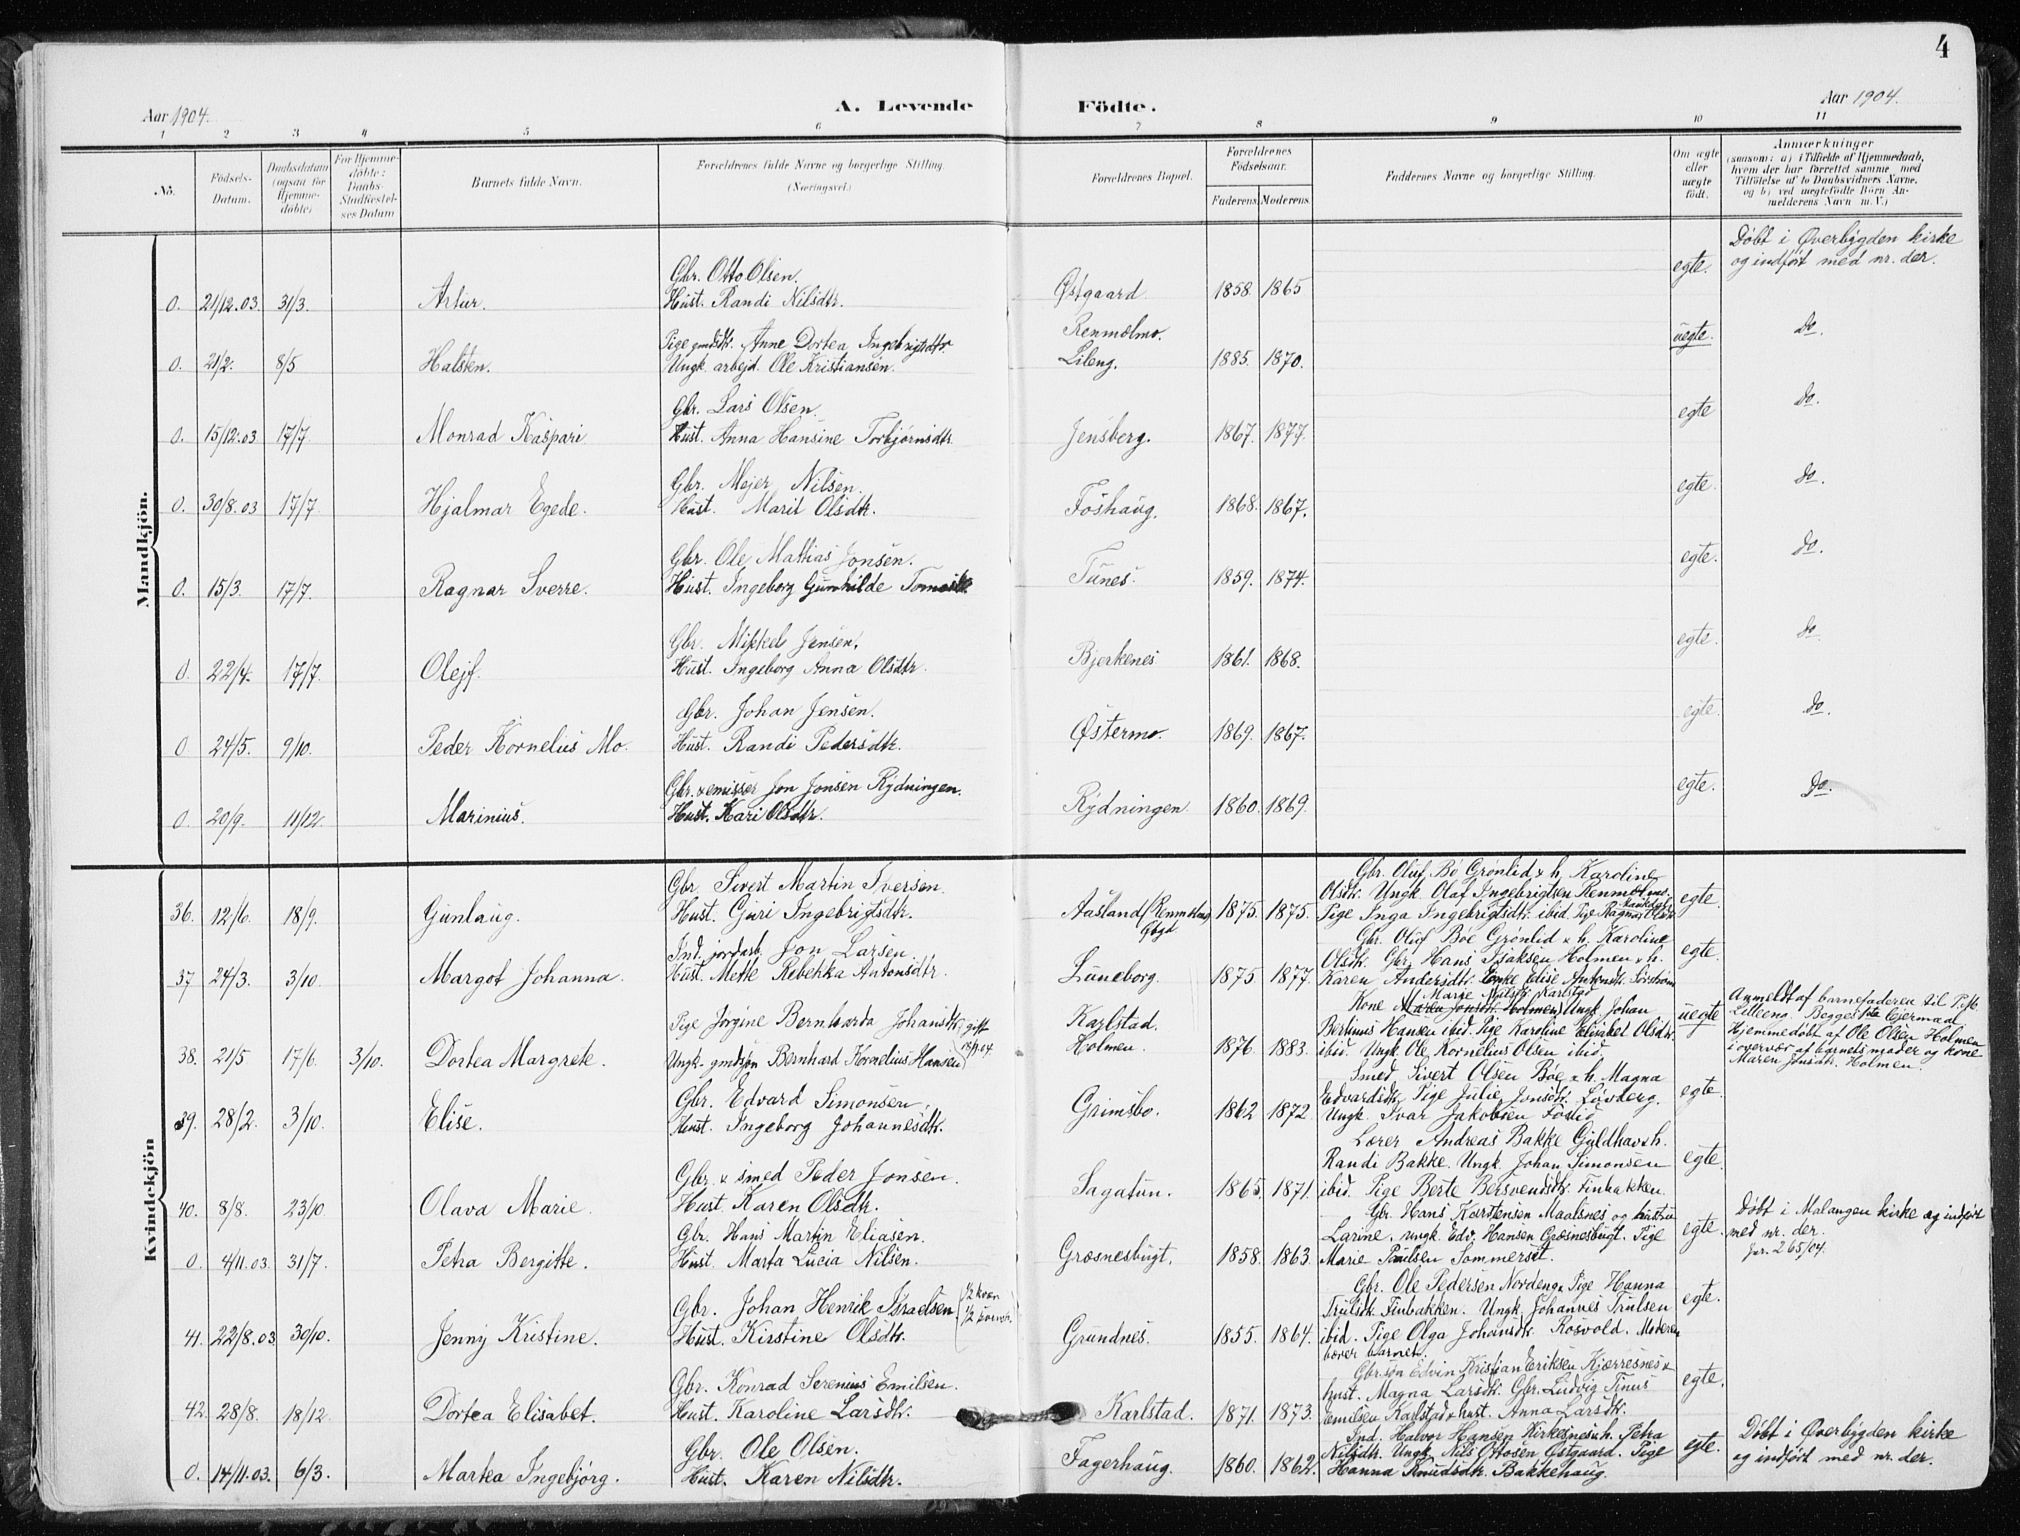 4
Aar 1904.
A. Levende Födte.
Aar 1904.
1 2 3 4 5 6 7 8 9 10 11
No.
Födsels-Datum.
Daabsdatum (ogsaa for Hjemme-döbte)
For Hjemme-döbte: Daabs-Stadfæstel-ses Datum
Barnets fulde Navn.
Forældrenes fulde Navne og borgerlige Stilling.
(Næringsvei.)
Forældrenes Bopæl.
Forældrenes Födselsaar.
Faderens Moderens
Faddernes Navne og borgerlige Stilling.
Om ægte eller uægte födt.
Anmærkninger
(saasom: a) i Tilfælde af Hjemmedaab,
hvem der har forrettet samme med
Tilföielse af to Daabsvidners Navne,
og b) ved uegtefödte Börn An-
melderens Navn m. V.)
Mandkjön.
0. 21/12.03 31/3. Artur.
Gbr. Otto Olsen.
Hust. Randi Nilsdtr.
Østgaard 1858 1865 egte.
Döbt i Øverbygden kirke
og indført med nr. der.
0. 21/2. 8/5 Halsten.
Pige gmdsdtr. Anne Dortea Ingebrigtsdtr.
Ungk. arbejd. Ole Kristiansen
Renmælmo.
Lileng. 1885. 1870. uegte. do.
0. 15/12.03 17/7. Monrad Kaspari
Gbr. Lars Olsen.
Hust. Anna Hansine Torbjørnsdtr.
Jensberg. 1867. 1877. egte do.
0. 30/8.03 17/7 Hjalmar Egede.
Gbr. Mejer Nilsen.
Hust. Marit Olsdtr.
Foshaug. 1868. 1867. egte. do.
0. 15/3. 17/7. Ragnar Sverre.
Gbr. Ole Mattias Jonsen.
Hust. Ingeborg Gunhilde
Tunes. 1859. 1874. egte. do.
0. 22/4. 17/7. Olejf.
Gbr. Mikkel Jensen.
Hust. Ingeborg Anna Olsdtr.
Bjerkenes 1861. 1868. egte. do.
0 24/5. 9/10. Peder Kornelius Mo.
Gbr. Johan Jensen.
Hust. Randi Pedersdtr.
Østermo. 1869. 1867. egte. do.
0. 20/9. 11/12. Marinius.
Gbr. & emissær Jon Jonsen Rydningen.
Hust. Kari Olsdtr.
Rydningen 1860. 1869. egte. do.
Kvindekjön
36. 12/6. 18/9. Gunlaug.
Gbr. Sivert Martin Iversen.
Hust. Guri Ingebrigtsdtr.
Aasland (Renmælmo Gbgd 1875. 1875.
Gbr. Oluf Bö Grønlid & h. Karoline
Olsdtr. Ungk. Olaf Ingebrigtsen Renmælmo.
Pige Inga Ingebrigtsdtr. ibid. Pige Ragna Olsdtr
egte.
37 24/3. 3/10. Margot Johanna.
Ind. jordarb. Jon Larsen
Hust. Mette Rebekka Antonsdtr.
Luneborg. 1875 1877.
Gbr. Oluf Böe Grønlid & h. Karoline
Olsdtr. Gbr. Hans Isaksen Holmen & h.
Karen Andersdtr. Enke Elise Antonsdtr.
egte.
38. 21/5 17/6. 3/10. Dortea Margrete.
Pige Jørgine Bernharda Johansdtr. gift
Ungk. gmdsøn Bernhard Kornelius Hansen
Karlstad.
Holmen. 1876. 1883.
Marie Nilsdtr Karlstad
Kone Maren Jonsdtr. Holmen Ungk. Johan
Bertinus Hansen ibid Pige Karoline Elisabet Olsdtr.
ibid. Ungk. Ole Kornelius Olsen ibid.
uegte
Anmeldt af barnefaderen til P.M.
Lilleeng. Begges 1ste lejermaal
Hjemmedöbt af Ole Olsen Holmen
i overvær af barnets moder og kone
Maren Jonsdtr. Holmen.
39. 28/2. 3/10. Elise.
Gbr. Edvard Simonsen.
Hust. Ingeborg Johannesdtr.
Grimsbo. 1862 1872
Smed Sivert Olsen Böe & h. Magna
Edvardsdtr. Pige Julie Jonsdtr. Løvberg.
Ungk. Ivar Jakobsen
egte.
40. 8/8. 23/10 Olava Marie.
Gbr. & smed Peder Jonsen.
Hust. Karen Olsdtr.
Sagatun. 1865. 1871.
Lærer Andreas Bakke Guldhav & h.
Randi Bakke. Ungk. Johan Simonsen
ibid. Pige Berte Bersvendsdtr. Finbakken.
egte.
0. 4/11.03. 31/7. Petra Bergitte.
Gbr. Hans Martin Eliasen.
Hust. Marta Lucia Nilsen.
Græsnesbugt. 1858. 1863.
Gbr. Hans Karstensen Maalsnes og hustru
Larine. ungk. Edv. Hansen Græsnesbugt. Pige
Marie Paulsen Sommerset.
egte.
Döbt i Malangen kirke og indført
med nr. der.
Jnr. 265/04.
41. 22/8.03 30/10. Jenny Kristine.
Gbr. Johan Henrik Israelsen (1/2 kvæn
Hust. Kirstine Olsdtr.
Grundnes. 1855. 1864.
Gbr. Ole Pedersen Nordeng & Pige Hanna
Trulsdtr. Finbakken. Ungk. Johannes Trulsen
ibid. Pige Olga Johansdtr. Rosvold. Moderen
bærer barnet.
egte.
42. 28/8. 18/12. Dortea Elisabet.
Gbr. Konrad Serenius Emilsen.
Hust. Karoline Larsdtr.
Karlstad. 1871. 1873.
Gbr.søn Edvin Kristian Eriksen Kjerresnes &
hust. Magna Larsdtr. Gbr. Ludvig Tinus
Emilsen Karlstad & hust. Anna Larsdtr.
egte.
0. 14/11.03. 6/3. Martea Ingebjørg.
Gbr. Ole Olsen.
Hust. Karen Nilsdtr.
Fagerhaug. 1860. 1862.
Ind. Halvor Hansen Kirkesnes & h. Petra
Nilsdtr. Ungk. Nils Ottosen Østgaard. Pige
Hanna Knudsdtr. Bakkehaug.
egte.
Döbt i Øverbygden kirke
og indført med nr. der.